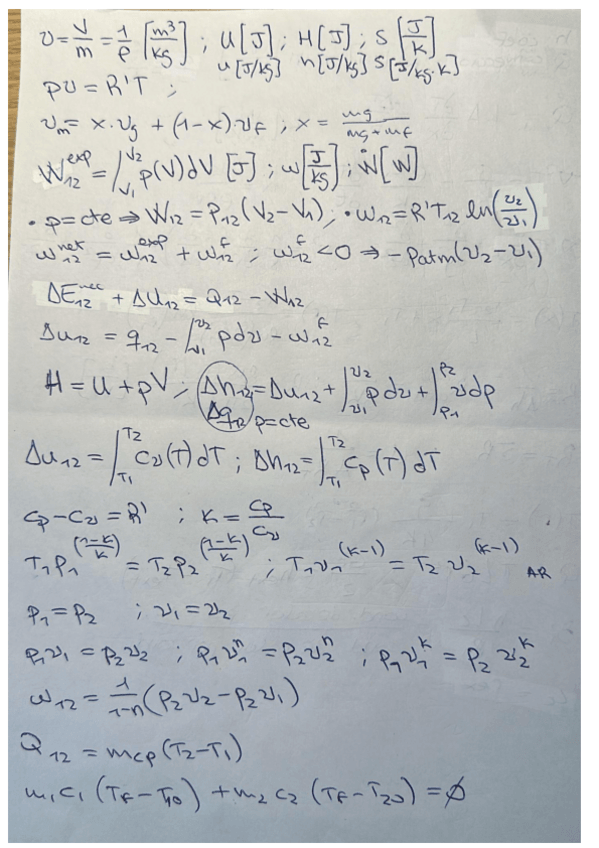 v = V/m = 1/ρ [m³/kg] ; U [J] ; H [J] ; S [J/K]
u [J/kg] h [J/kg] s [J/kg·K]
pv = R'T ;
v_m = x·v_g + (1-x)·v_f ; x = m_g/(m_g+m_f)
W₁₂^exp = ∫_V₁^V₂ p(V)dV [J] ; w [J/kg] ; Ẇ [W]
· p=cte ⇒ W₁₂ = P₁₂(V₂-V₁) ; · w₁₂ = R'T₁₂ ln(v₂/v₁)
w₁₂^net = w₁₂^exp + w₁₂^f ; w₁₂^f < 0 ⇒ -Patm(v₂-v₁)
ΔE₁₂^mec + ΔU₁₂ = Q₁₂ - W₁₂
Δu₁₂ = q₁₂ - ∫_v₁^v₂ pdv - w₁₂^f
H = U + pV ; Δh₁₂ = Δu₁₂ + ∫_v₁^v₂ pdv + ∫_p₁^p₂ vdp
Δq₁₂ p=cte
Δu₁₂ = ∫_T₁^T₂ c_v(T)dT ; Δh₁₂ = ∫_T₁^T₂ c_p(T)dT
c_p - c_v = R' ; K = c_p/c_v
T₁P₁^((1-K)/K) = T₂P₂^((1-K)/K) ; T₁v₁^(K-1) = T₂v₂^(K-1) AR
P₁ = P₂ ; v₁ = v₂
P₁v₁ = P₂v₂ ; P₁v₁^n = P₂v₂^n ; P₁v₁^K = P₂v₂^K
w₁₂ = 1/(1-n) (P₂v₂ - P₂v₁)
Q₁₂ = mc_p(T₂-T₁)
m₁c₁(T_F - T₁₀) + m₂c₂(T_F - T₂₀) = ∅